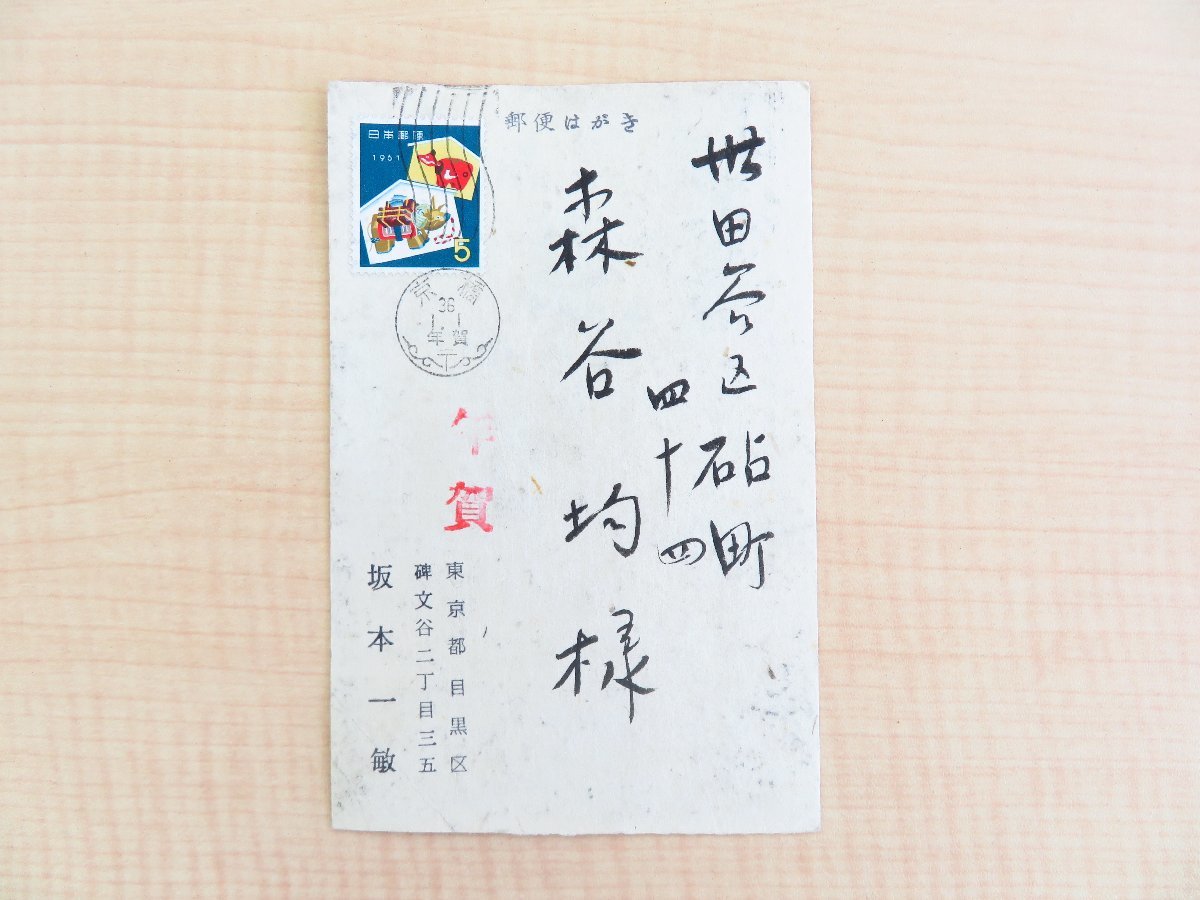 郵便はがき
世田谷区砧町
四十四
森谷均様
日本郵便
1961
5
京橋
36
1 1
年賀
下
年賀
東京都目黒区
碑文谷二丁目三五
坂本一敏